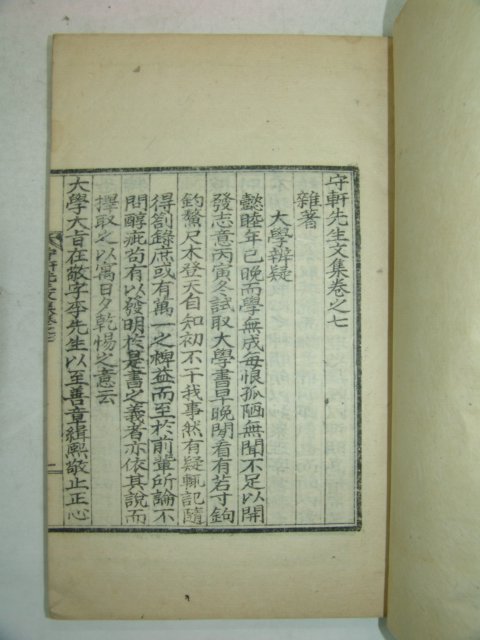 守軒先生文集卷之七
雜著
大學辨疑
懿睦年已晚而學無成每恨孤陋無聞不足以開
發志意丙寅冬試取大學書早晚閒看有若寸鉤
釣鰲尺木登天自知初不干我事然有疑輒記隨
得劄錄庶或有萬一之裨益而至於前輩所論不
問醇疵苟有以發明於是書之義者亦依其說而
擇取之以寓日夕乾惕之意云
大學大旨在敬字李先生以至善章緝熙敬止正心